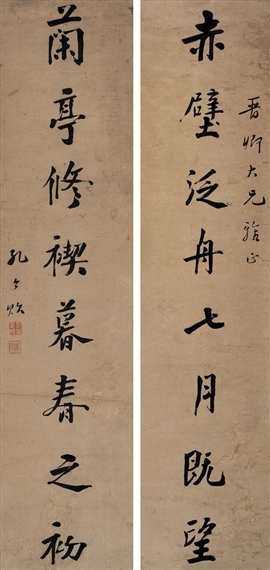 晉卿大兄雅正
赤壁泛舟七月既望
蘭亭修禊暮春之初
孔令